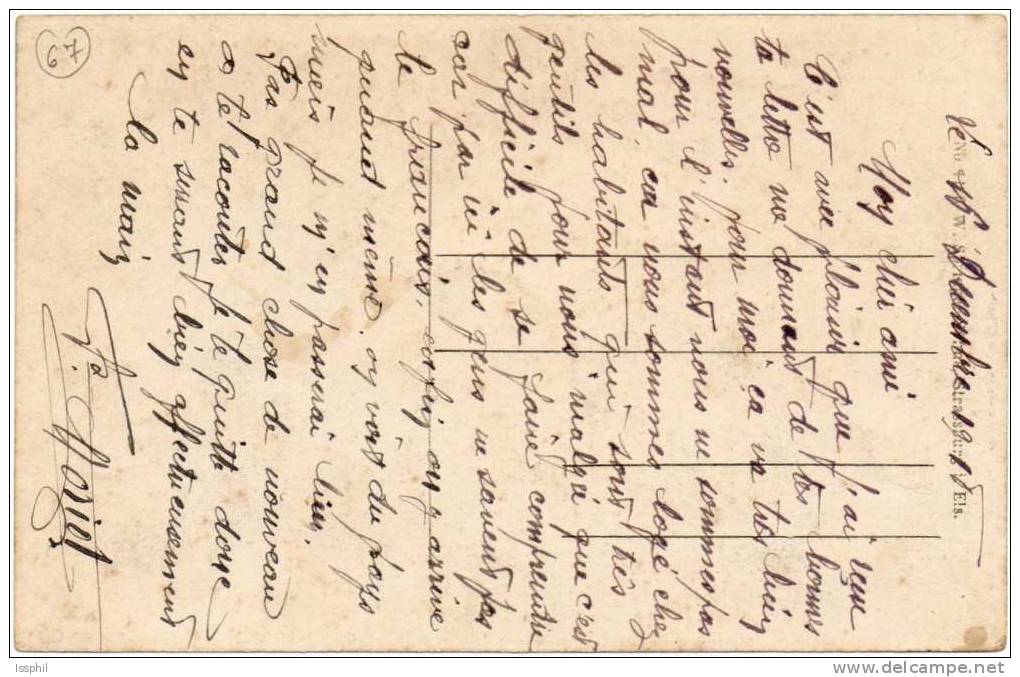 Le 18 Décembre 1918
Mon chér ami
C'est avec plaisir que j'ai réçu
ta lettre me donnant de tes bonnes
nouvelles. pour moi ça va très bien
pour l'instant nous ne sommes pas
mal car nous sommes logé chez
les habitants qui sont très
gentils pour nous malgé que c'est
difficile de se faire comprendre
car par ici les gens ne savent pas
le français. enfin on y arrive
quand même. on voit du pays
mais je m'en passerai bien.
Pas grand chose de nouveau
a te raconter je te quitte donc
en te serrant bien affectueusement
la main
Strassburg i. Els.
Issphil
delcampe.net